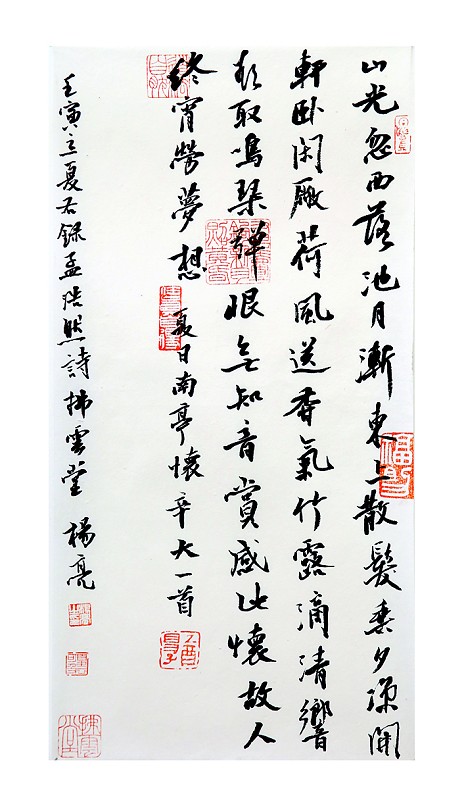 山光忽西落池月漸東上散髮乘夕涼開
軒卧闲敞荷風送香氣竹露滴清響
欲取鳴琴彈恨無知音賞感此懷故人
終宵勞夢想 夏日南亭懷辛大一首
壬寅立夏右錄孟浩然詩拂雲堂 楊亮
拂雲堂